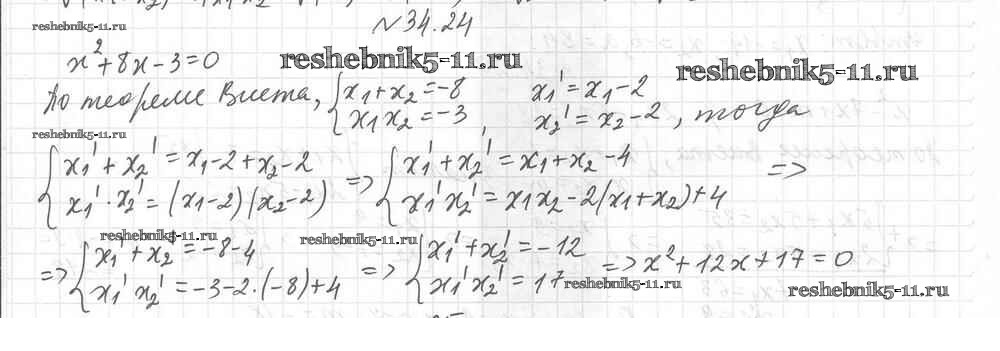 №34.24
reshebnik5-11.ru
x²+8x-3=0
reshebnik5-11.ru
reshebnik5-11.ru
По теореме Виета, {x₁+x₂=-8 x₁'=x₁-2
{x₁x₂=-3, x₂'=x₂-2, тогда
reshebnik5-11.ru
{x₁'+x₂'=x₁-2+x₂-2 => {x₁'+x₂'=x₁+x₂-4 =>
{x₁'·x₂'=(x₁-2)(x₂-2) {x₁'x₂'=x₁x₂-2(x₁+x₂)+4
reshebnik5-11.ru reshebnik5-11.ru
=> {x₁'+x₂'=-8-4 => {x₁'+x₂'=-12 => x²+12x+17=0
{x₁'x₂'=-3-2·(-8)+4 {x₁'x₂'=17
reshebnik5-11.ru reshebnik5-11.ru